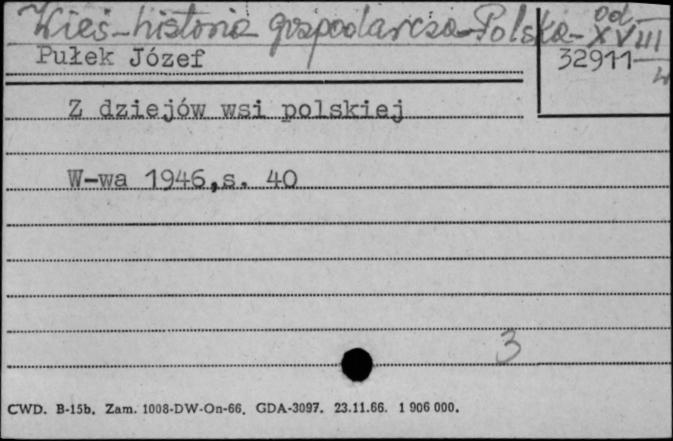 Wieś-historia gospodarcza-Polska-od XVIII w
Pułek Józef
32911
Z dziejów wsi polskiej
W-wa 1946,s. 40
3
CWD. B-15b. Zam. 1008-DW-On-66. GDA-3097. 23.11.66. 1 906 000.